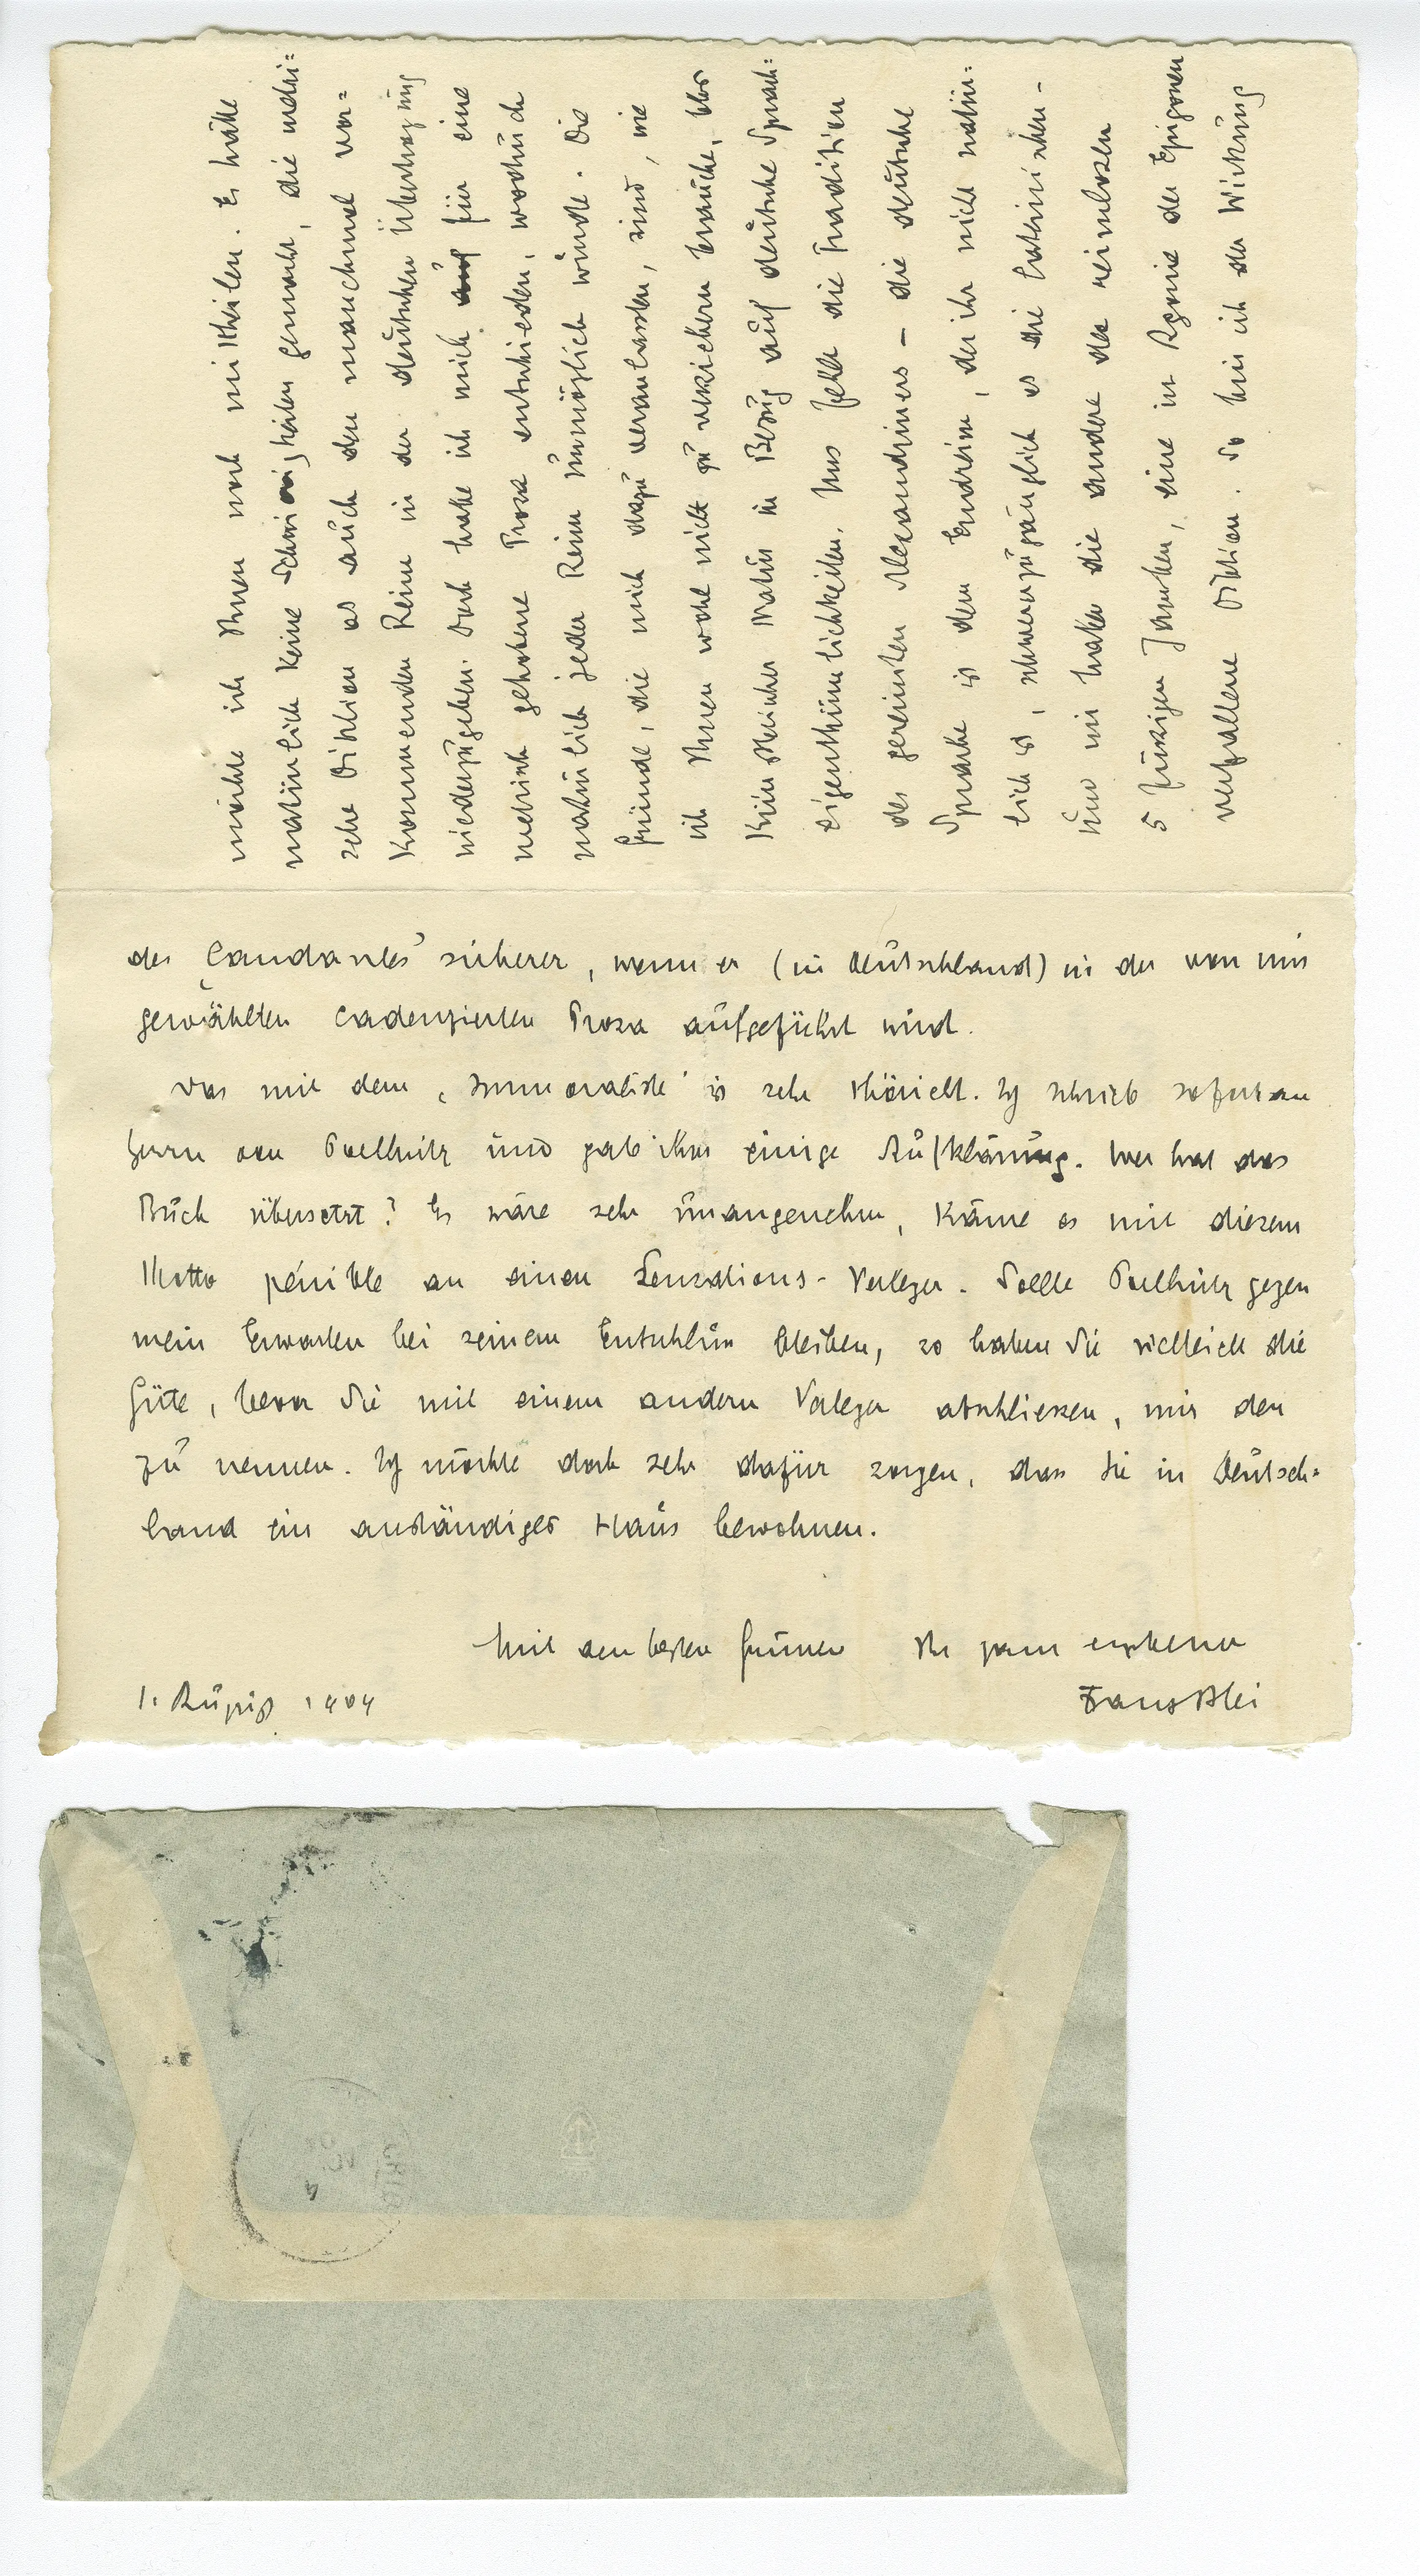 möchte ich Ihnen noch mittheilen. Es hätte
natürlich keine Schwierigkeiten gemacht, die metri=
sche Diktion als auch den manchmal vor=
kommenden Reim in der deutschen Übertragung
niederzugeben. Doch habe ich mich für eine
metrisch gehobene Prosa entschieden, wodurch
natürlich jeder Reim unmöglich würde. Die
Gründe, die mich dazu veranlassten, sind, wie
ich Ihnen wohl nicht zu versichern brauche, blos
künstlerischer Natur in Bezug auf deutsche Sprach=
eigenthümlichkeiten. Uns fehlt die Tradition
des gereimten Alexandriners – die deutsche
Sprache ist dem Endreim, der ihr nicht natür=
lich ist, schwerer zugänglich als die lateinischen –
und wir haben die andere der reimlosen
5 füssigen Jamben, eine in Regie der Epigonen
verfallene Diktion. So bin ich der Wirkung
des Candaules' sicherer, wenn er (in Deutschland) in der von mir
gewählten cadenzierten Prosa aufgeführt wird.
Das mit dem ‚Immoraliste' ist sehr thöricht. Ich schrieb sofort an
Herrn von Poellnitz und gab ihm einige Aufklärung. Wer hat das
Buch übersetzt? Es wäre sehr unangenehm, käme es mit diesem
Motto pénible an einen Sensations-Verleger. Sollte Poellnitz gegen
mein Erwarten bei seinem Entschluss bleiben, so haben Sie vielleicht die
Güte, bevor Sie mit einem andern Verleger abschliessen, mir den
zu nennen. Ich möchte doch sehr dafür sorgen, dass Sie in Deutsch=
land ein anständiges Haus bewohnen.
Mit den besten Grüssen Ihr ganz ergebener
1. August 1904 Franz Blei